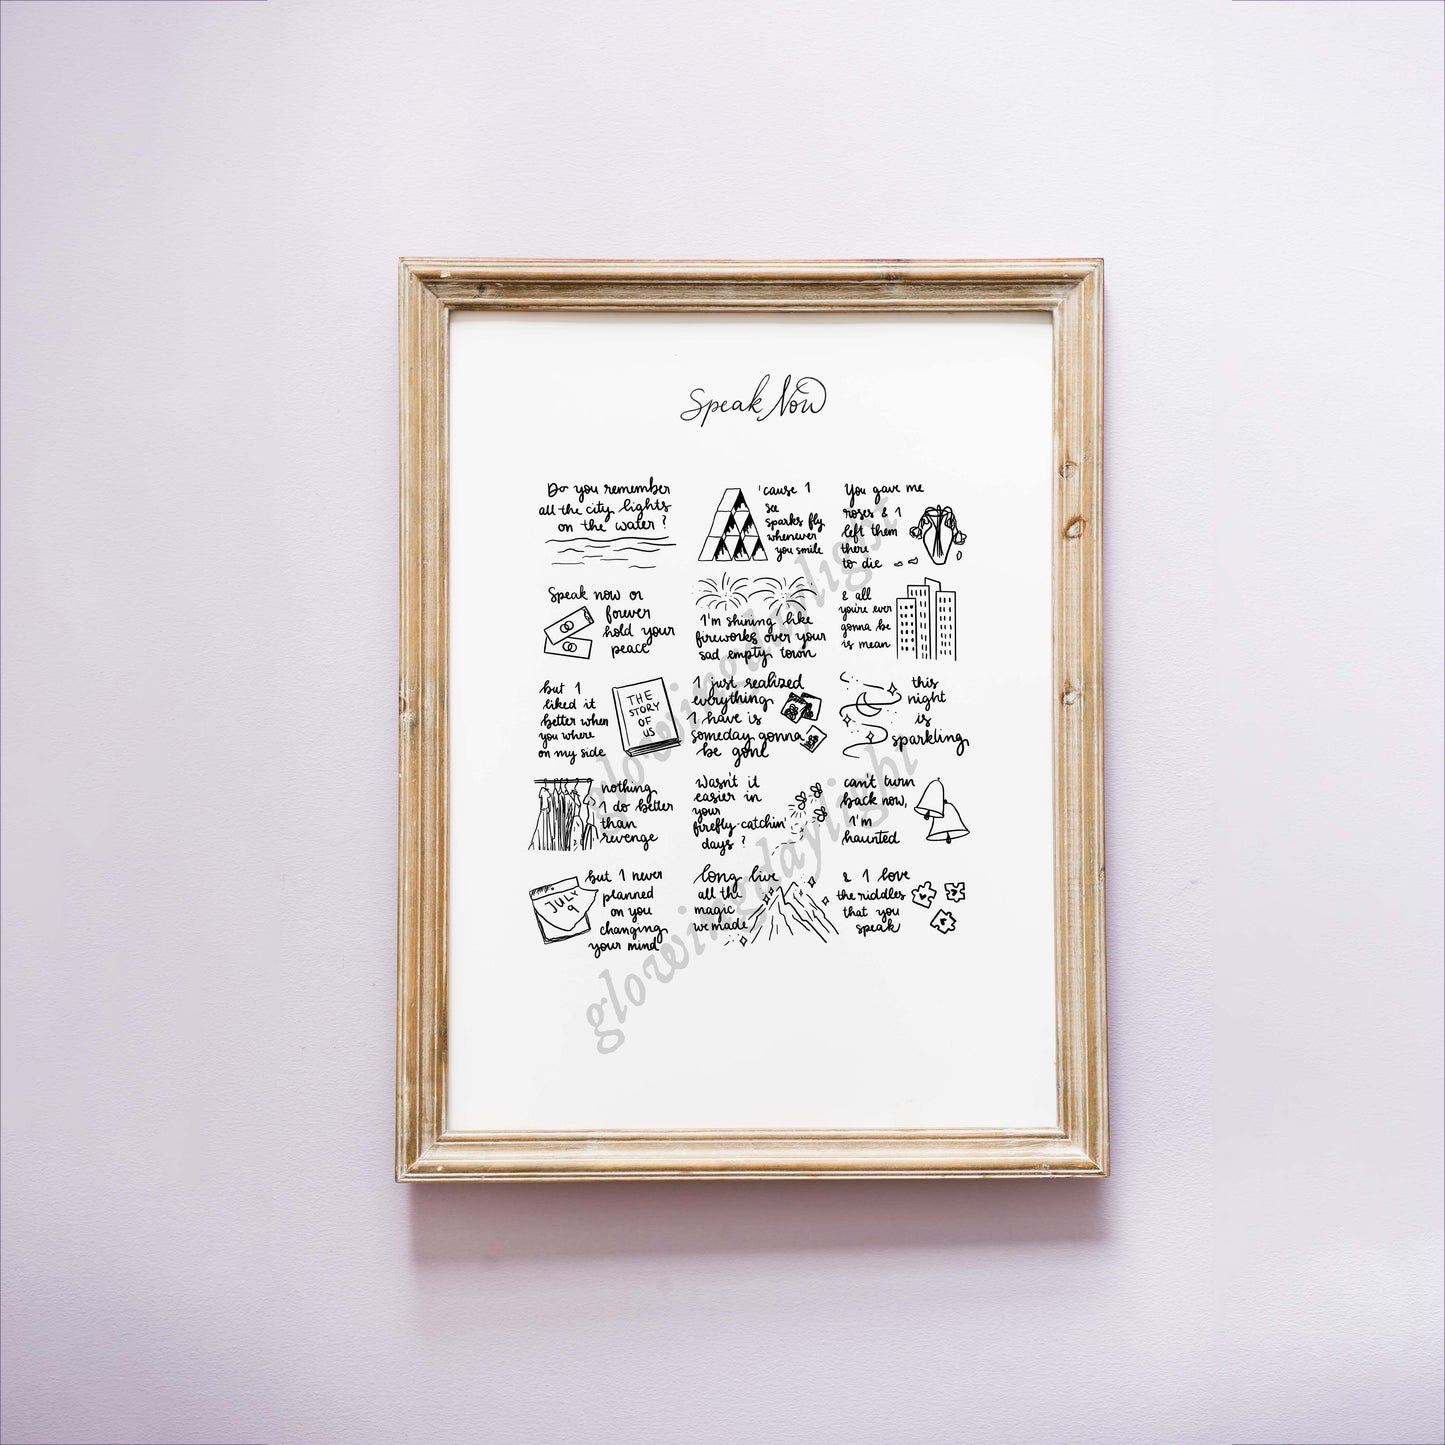 Speak Now
Do you remember
all the city lights
on the water?
'cause I
see
sparks fly
whenever
you smile
You gave me
roses & I
left them
there
to die
Speak now or
forever
hold your
peace
I'm shining like
fireworks over your
sad empty town
& all
you're ever
gonna be
is mean
but I
liked it
better when
you where
on my side
THE
STORY
OF
US
I just realized
everything
I have is
someday gonna
be gone
this
night
is
sparkling
nothing
I do better
than
revenge
Wasn't it
easier in
your
firefly-catchin'
days?
can't turn
back now,
I'm
haunted
JULY
9
but I never
planned
on you
changing
your mind
long live
all the
magic
we made
& I love
the riddles
that you
speak
glowingdaylight
glowingdaylight